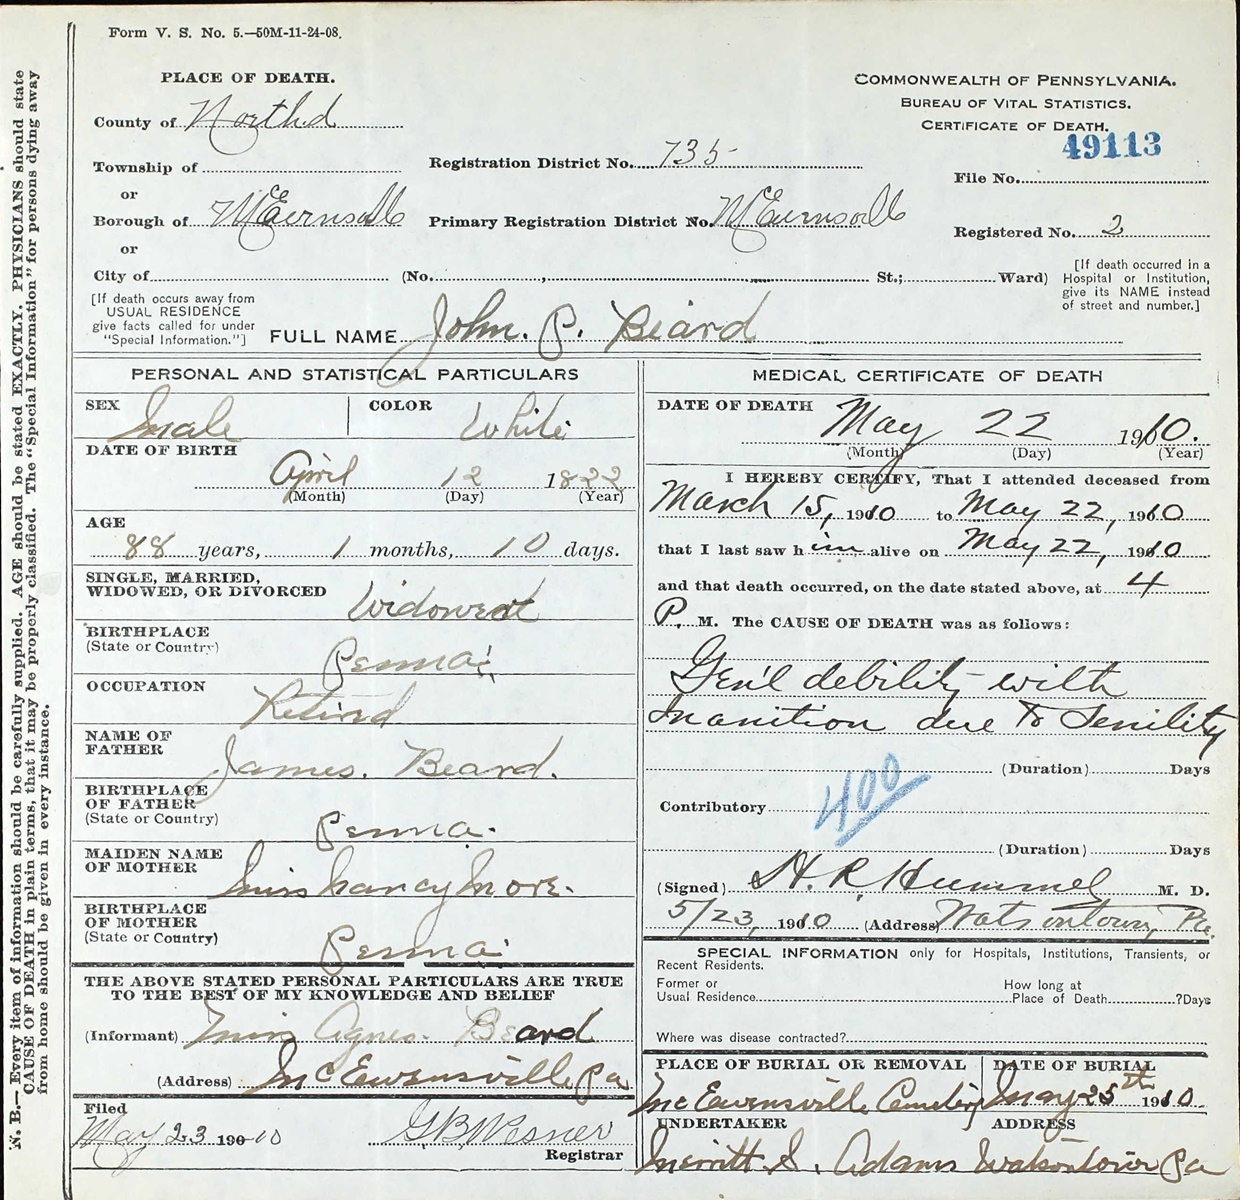 Form V. S. No. 5.—50M-11-24-08.
PLACE OF DEATH.
County of Northd
Township of
or
Borough of McEwensville
or
City of
(No. , St.; Ward)
[If death occurs away from
USUAL RESIDENCE
give facts called for under
"Special Information."]
Registration District No. 735
Primary Registration District No. McEwensville
COMMONWEALTH OF PENNSYLVANIA.
BUREAU OF VITAL STATISTICS.
CERTIFICATE OF DEATH.
49113
File No.
Registered No. 2
[If death occurred in a
Hospital or Institution,
give its NAME instead
of street and number.]
FULL NAME John. P. Beard
PERSONAL AND STATISTICAL PARTICULARS
SEX Male
COLOR White
DATE OF BIRTH
April 12 1822
(Month) (Day) (Year)
AGE
88 years, 1 months, 10 days.
SINGLE, MARRIED,
WIDOWED, OR DIVORCED Widowed
BIRTHPLACE
(State or Country) Penna.
OCCUPATION Retired
NAME OF
FATHER James. Beard.
BIRTHPLACE
OF FATHER
(State or Country) Penna.
MAIDEN NAME
OF MOTHER Miss Nancy More.
BIRTHPLACE
OF MOTHER
(State or Country) Penna.
THE ABOVE STATED PERSONAL PARTICULARS ARE TRUE
TO THE BEST OF MY KNOWLEDGE AND BELIEF
(Informant) Miss Agnes. Beard
(Address) McEwensville Pa
Filed
May 23 190 10 G.B. Wesner
Registrar
MEDICAL CERTIFICATE OF DEATH
DATE OF DEATH May 22 1910.
(Month) (Day) (Year)
I HEREBY CERTIFY, That I attended deceased from
March 15, 1910 to May 22, 1910
that I last saw him alive on May 22, 1910
and that death occurred, on the date stated above, at 4
P. M. The CAUSE OF DEATH was as follows:
Gen'l debility with
Inanition due to Senility
(Duration) Days
400
Contributory
(Duration) Days
(Signed) H. R. Hummel M. D.
5/23, 1910 (Address) Watsontown, Pa.
SPECIAL INFORMATION only for Hospitals, Institutions, Transients, or
Recent Residents.
Former or
Usual Residence
How long at
Place of Death ?Days
Where was disease contracted?
PLACE OF BURIAL OR REMOVAL
McEwensville Cemetery
DATE OF BURIAL
May 25th 1910
UNDERTAKER ADDRESS
Merritt S. Adams Watsontown Pa
N. B.—Every item of information should be carefully supplied. AGE should be stated EXACTLY. PHYSICIANS should state
CAUSE OF DEATH in plain terms, that it may be properly classified. The "Special Information" for persons dying away
from home should be given in every instance.